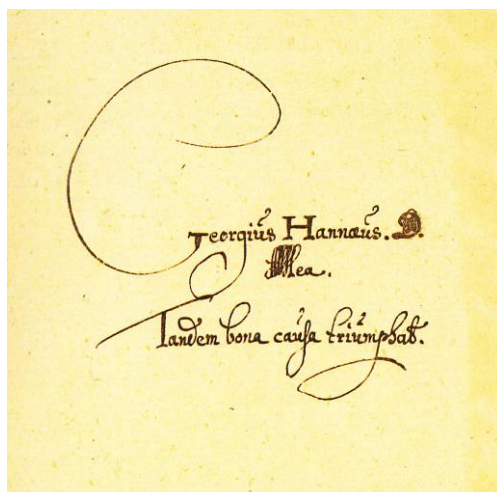 Georgiůs Hannæůs. D.
Mea.
Tandem bona caůsa triůmphat.